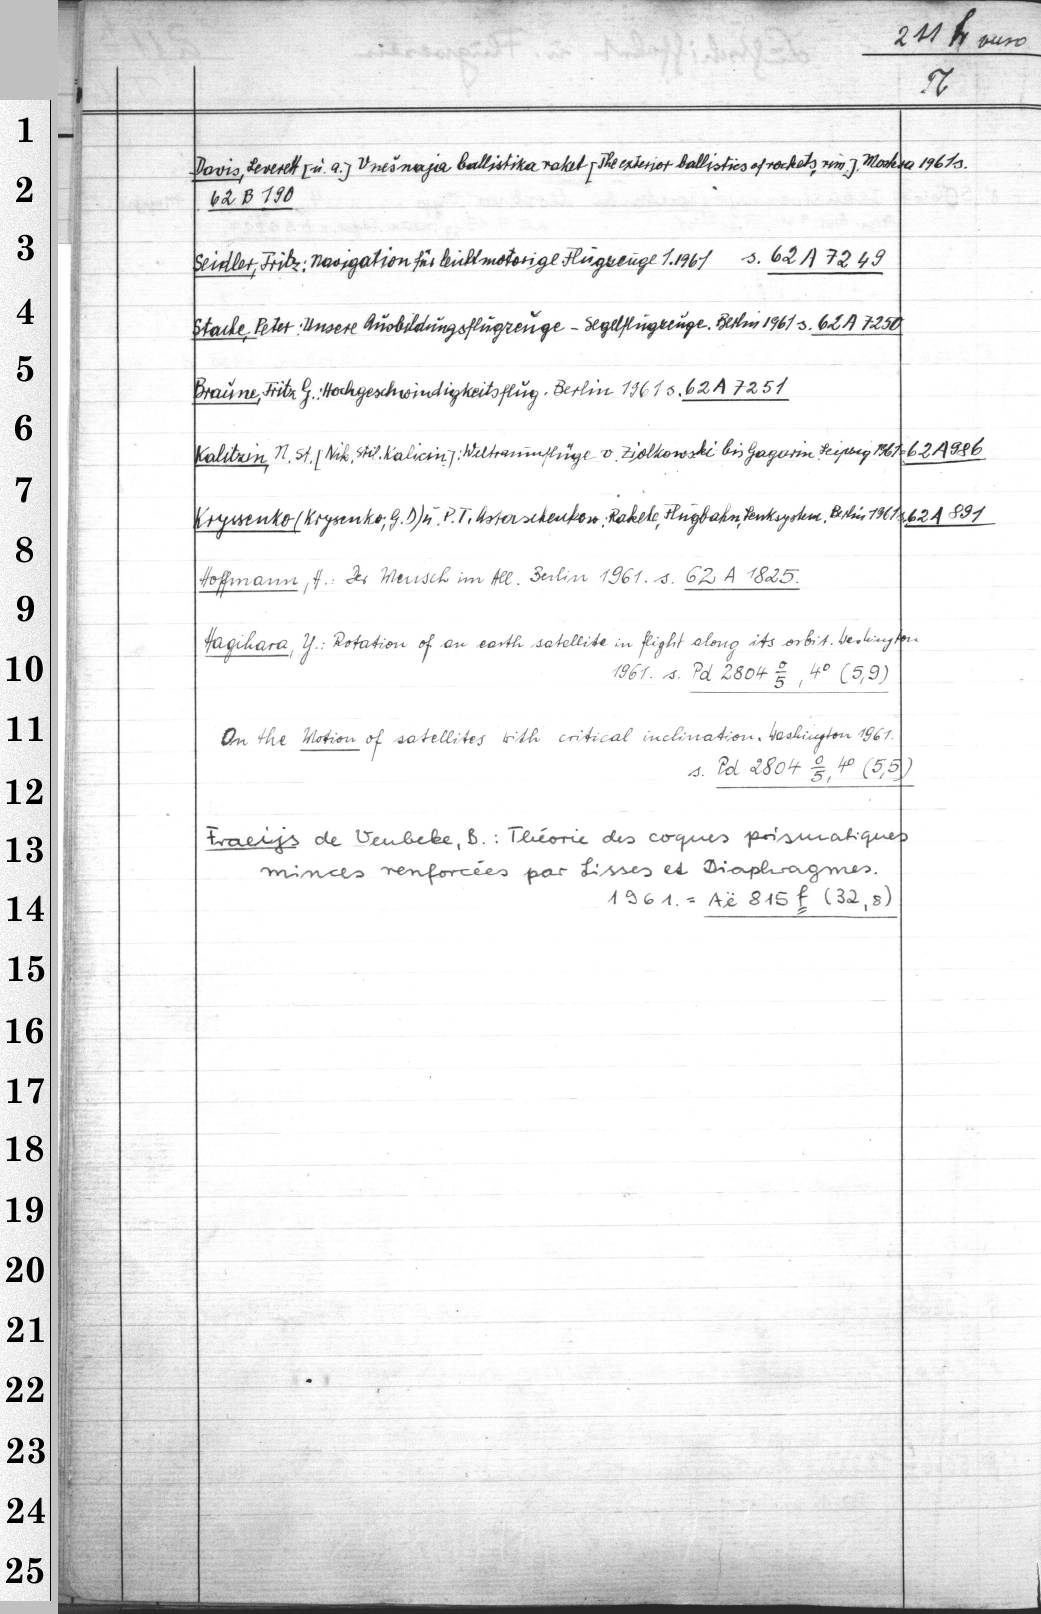 211 h verso
N
1
Davis, Leverett [u. a.] Vnešnaja ballistika raket [The exterior ballistics of rockets, russ.]. Moskva 1961 s.
2
62 B 190
3
Seidler, Fritz: Navigation für leichtmotorige Flugzeuge 1.1961 s. 62 A 7249
4
Stache, Peter: Unsere Ausbildungsflugzeuge – Segelflugzeuge. Berlin 1961 s. 62 A 7250
5
Braune, Fritz G.: Hochgeschwindigkeitsflug. Berlin 1961 s. 62 A 7251
6
Kalitzin, N. St. [Nik. Stil. Kalicin]: Weltraumflüge v. Ziolkowski bis Gagarin. Leipzig 1961 = 62 A 986
7
Kryssenko (Krysenko, G. D) u. P. T. Astaschenkow: Rakete, Flugbahn, Lenksystem. Berlin 1961 s. 62 A 891
8
Hoffmann, H.: Der Mensch im All. Berlin 1961. s. 62 A 1825.
9
Hagihara, Y.: Rotation of an earth satellite in flight along its orbit. Washington
10
1961. s. Pd 2804 o/5, 4° (5,9)
11
On the Motion of satellites with critical inclination. Washington 1961.
12
s. Pd 2804 o/5, 4° (5,5)
13
Fraeijs de Veubeke, B.: Théorie des coques prismatiques
minces renforcées par Lisses et Diaphragmes.
14
1961. = Aë 815 f (32,8)
15
16
17
18
19
20
21
22
23
24
25